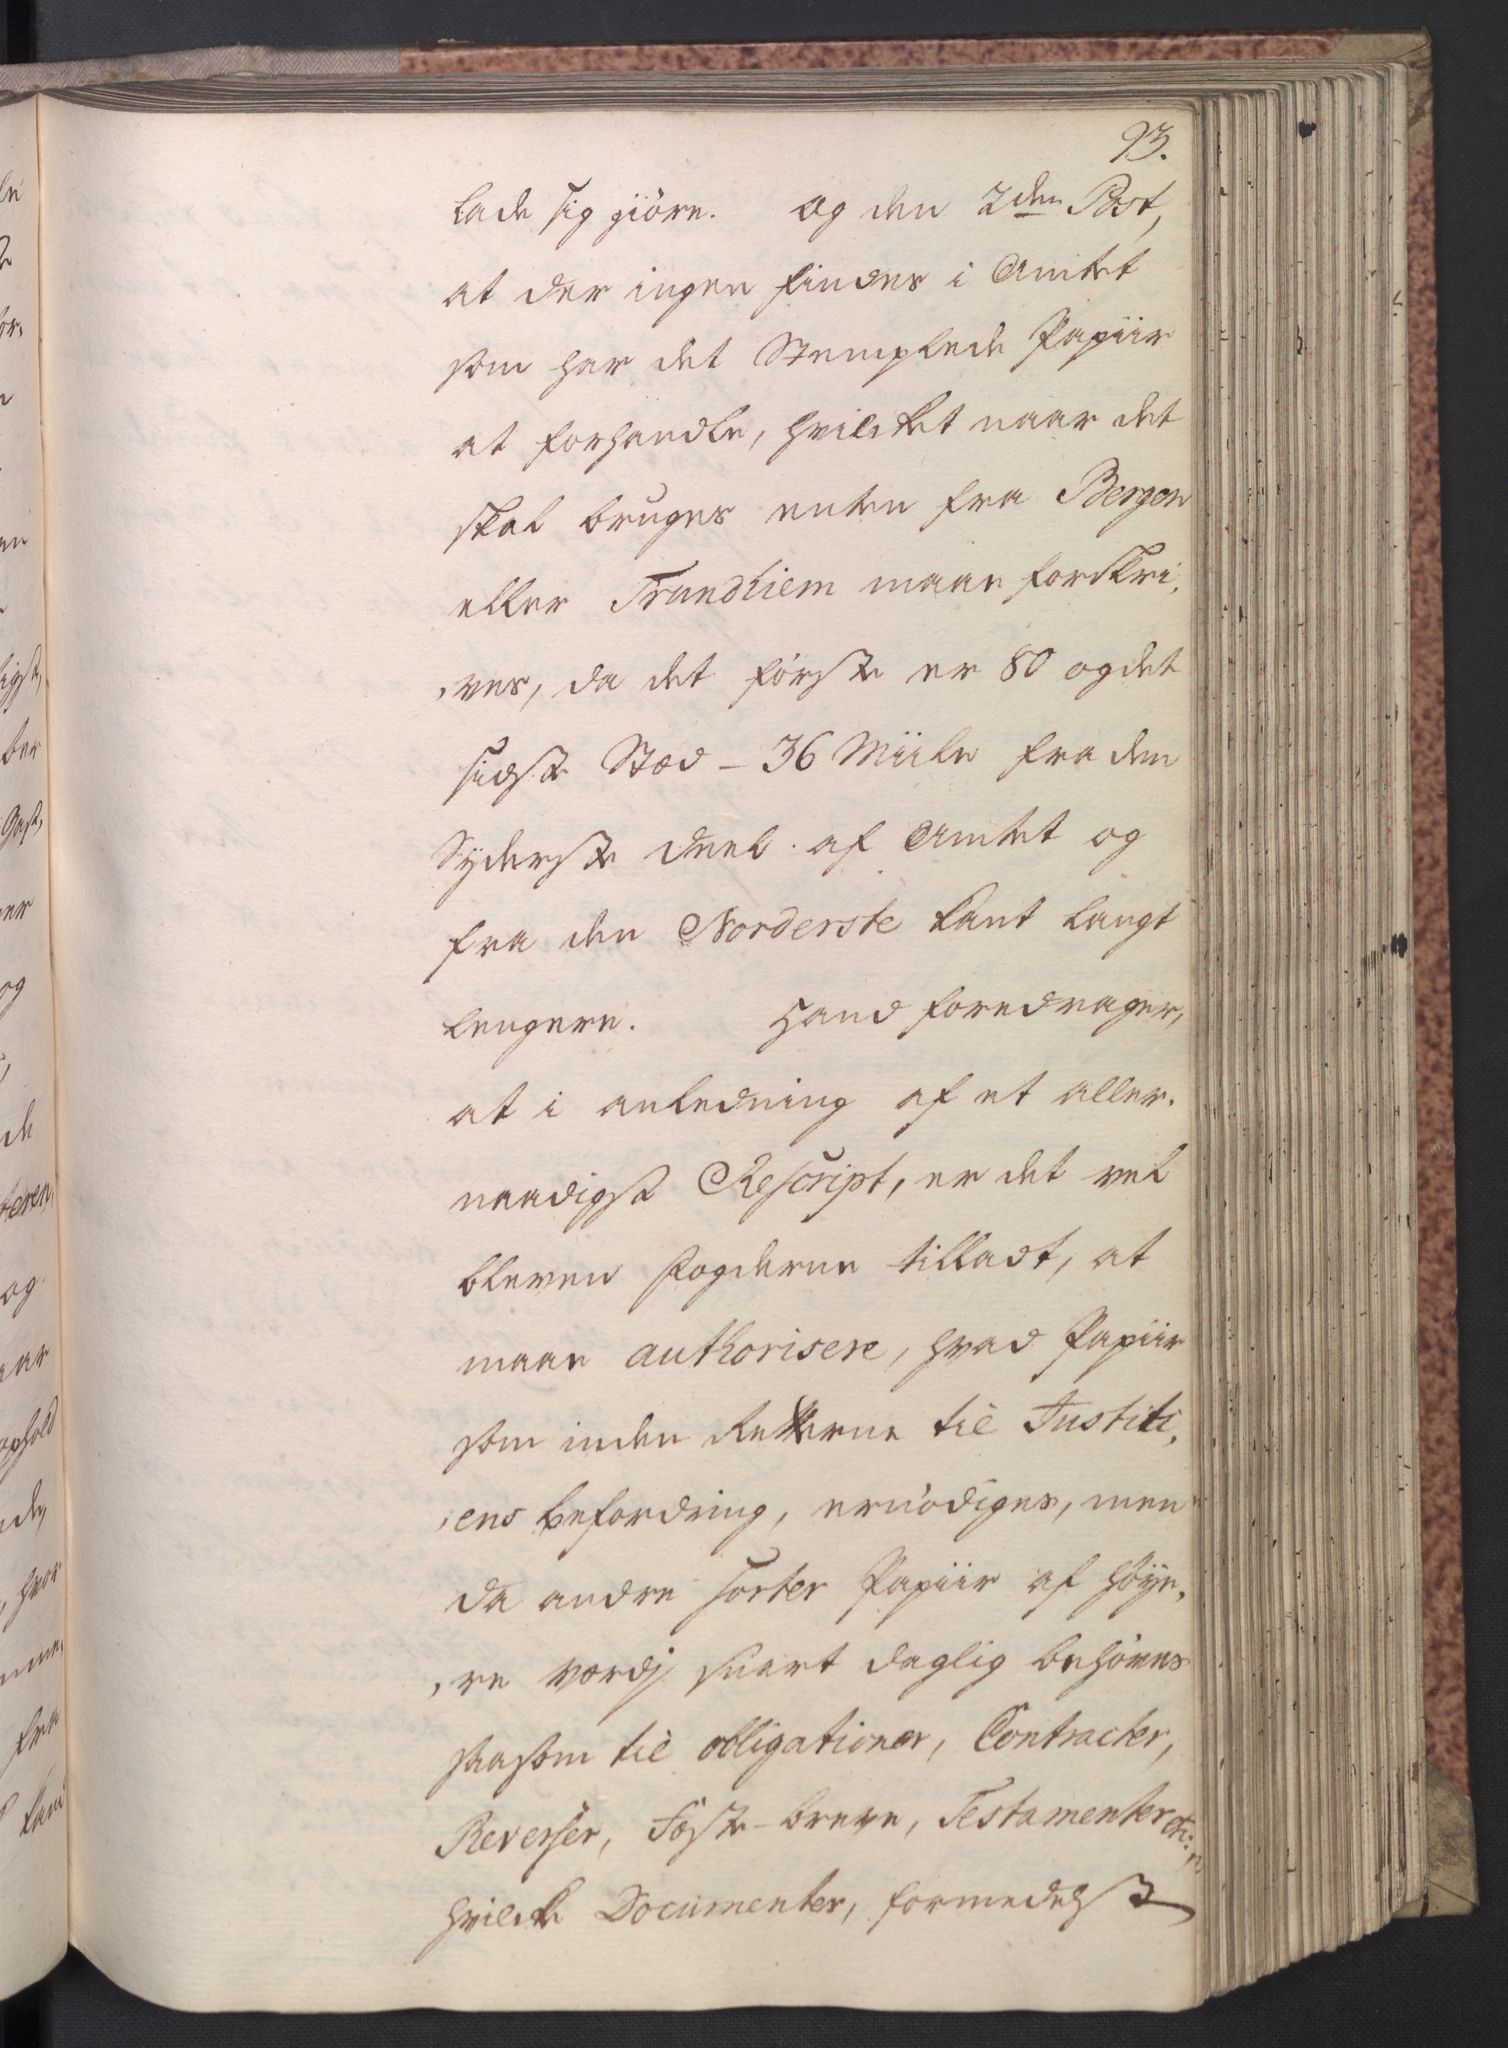 93.
lade sig giöre. Og den 2den Post,
at der ingen findes i Amtet
som har det Stemplede Papiir
at forhandle, hvilcket naar det
skal bruges enten fra Bergen
eller Trundhiem maae forskri,
,ves, da det første er 80 og det
sidste Stæd - 36 Miile fra den
Syderste deel af Amtet og
fra den Norderste kant langt
lengere. Hand foredrager,
at i anledning af et aller,
naadigst Rescript, er det vel
bleven Fogderne tilladt, at
maae authorisere, hvad Papiir
som inden Retterne til Justiti,
,ens befordring, ernödiges, men
da andre sorter Papiir af höye,
,re værdj snart daglig behöves
saasom til obligationer, Contracter,
Reverser, Fæste-breve, Testamenter etc:
hvilcke Documenter, formedelst
le
or,
en
ligst,
ber
Gast,
er
og
de
teren,
og
aar
ophold
nde,
, hvor
fra